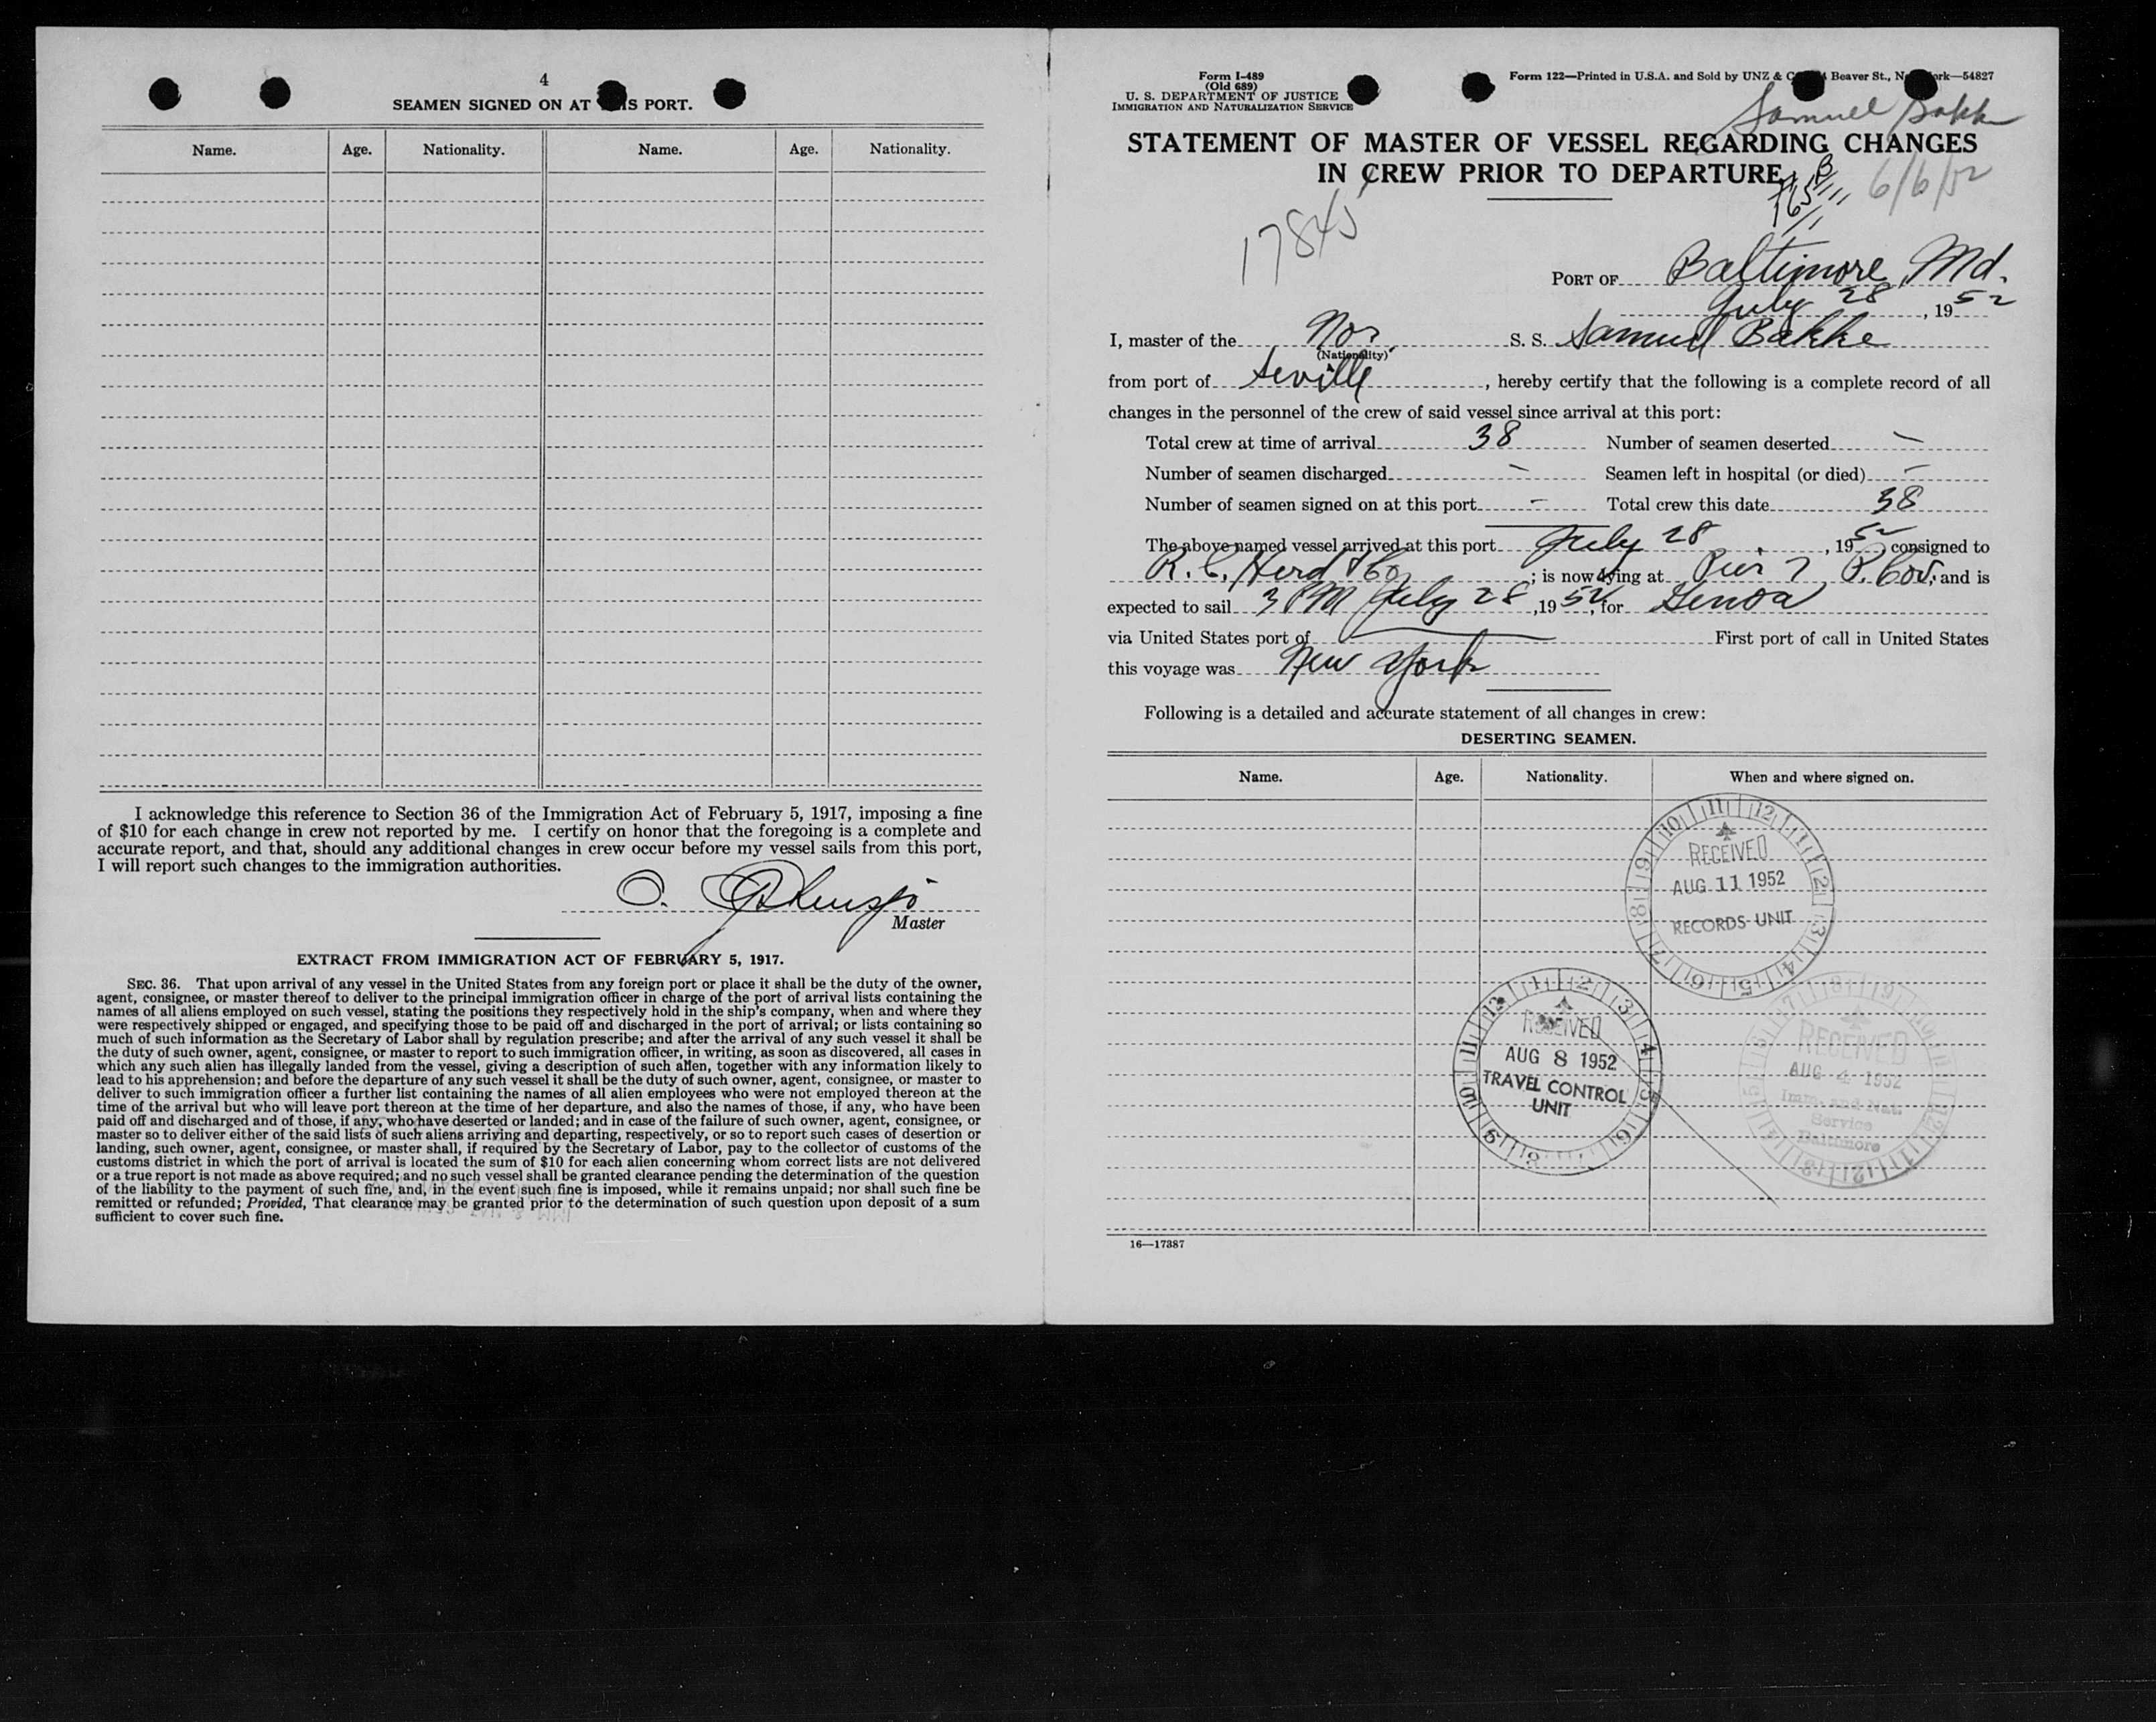 4
SEAMEN SIGNED ON AT THIS PORT.
Name. Age. Nationality. Name. Age. Nationality.
I acknowledge this reference to Section 36 of the Immigration Act of February 5, 1917, imposing a fine
of $10 for each change in crew not reported by me. I certify on honor that the foregoing is a complete and
accurate report, and that, should any additional changes in crew occur before my vessel sails from this port,
I will report such changes to the immigration authorities.
O.
Master
EXTRACT FROM IMMIGRATION ACT OF FEBRUARY 5, 1917.
SEC. 36. That upon arrival of any vessel in the United States from any foreign port or place it shall be the duty of the owner,
agent, consignee, or master thereof to deliver to the principal immigration officer in charge of the port of arrival lists containing the
names of all aliens employed on such vessel, stating the positions they respectively hold in the ship's company, when and where they
were respectively shipped or engaged, and specifying those to be paid off and discharged in the port of arrival; or lists containing so
much of such information as the Secretary of Labor shall by regulation prescribe; and after the arrival of any such vessel it shall be
the duty of such owner, agent, consignee, or master to report to such immigration officer, in writing, as soon as discovered, all cases in
which any such alien has illegally landed from the vessel, giving a description of such alien, together with any information likely to
lead to his apprehension; and before the departure of any such vessel it shall be the duty of such owner, agent, consignee, or master to
deliver to such immigration officer a further list containing the names of all alien employees who were not employed thereon at the
time of the arrival but who will leave port thereon at the time of her departure, and also the names of those, if any, who have been
paid off and discharged and of those, if any, who have deserted or landed; and in case of the failure of such owner, agent, consignee, or
master so to deliver either of the said lists of such aliens arriving and departing, respectively, or so to report such cases of desertion or
landing, such owner, agent, consignee, or master shall, if required by the Secretary of Labor, pay to the collector of customs of the
customs district in which the port of arrival is located the sum of $10 for each alien concerning whom correct lists are not delivered
or a true report is not made as above required; and no such vessel shall be granted clearance pending the determination of the question
of the liability to the payment of such fine, and, in the event such fine is imposed, while it remains unpaid; nor shall such fine be
remitted or refunded; Provided, That clearance may be granted prior to the determination of such question upon deposit of a sum
sufficient to cover such fine.
Form I-489
(Old 689)
U. S. DEPARTMENT OF JUSTICE
IMMIGRATION AND NATURALIZATION SERVICE
Form 122—Printed in U.S.A. and Sold by UNZ & Beaver St., New York—54827
Samuel Bakke
STATEMENT OF MASTER OF VESSEL REGARDING CHANGES
IN CREW PRIOR TO DEPARTURE
6/6/52
17845
PORT OF Baltimore, Md.
July 28, 1952
I, master of the Nor. S. S. Samuel Bakke
(Nationality)
from port of Seville, hereby certify that the following is a complete record of all
changes in the personnel of the crew of said vessel since arrival at this port:
Total crew at time of arrival 38 Number of seamen deserted —
Number of seamen discharged - Seamen left in hospital (or died) —
Number of seamen signed on at this port - Total crew this date 38
The above named vessel arrived at this port July 28, 1952, consigned to
R. C. Herd & Co; is now lying at Pier 7 P. Cov., and is
expected to sail 3 PM July 28, 1952, for Genoa
via United States port of — First port of call in United States
this voyage was New York
Following is a detailed and accurate statement of all changes in crew:
DESERTING SEAMEN.
Name. Age. Nationality. When and where signed on.
RECEIVED
AUG 11 1952
RECORDS UNIT
RECEIVED
AUG 8 1952
TRAVEL CONTROL
UNIT
RECEIVED
AUG 4 1952
Imm. and Nat.
Service
Baltimore
16—17387